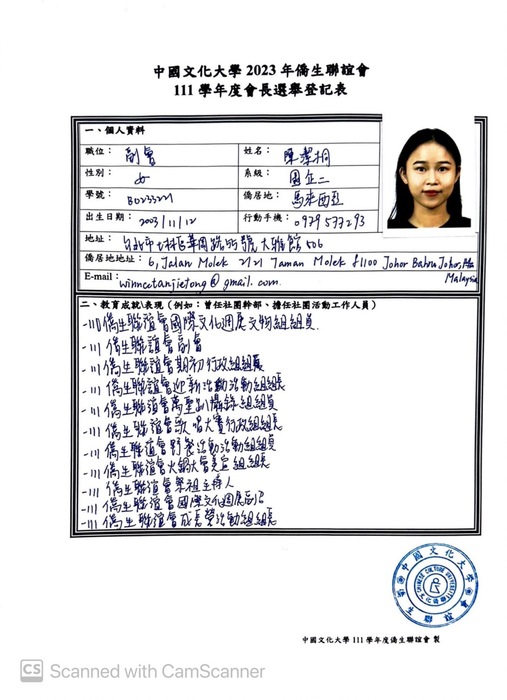 中國文化大學 2023 年僑生聯誼會
111 學年度會長選舉登記表
一、個人資料
職位： 副會 姓名： 陳潔桐
性別： 女 系級： 國企二
學號： B0233221 僑居地： 馬來西亞
出生日期： 2003/11/12 行動手機： 0979577293
地址： 台北市士林區華岡路55號大雅館506
僑居地地址： 6, Jalan Molek 2/21 Taman Molek 81100 Johor Bahru, Johor, Malaysia
E-mail： winncetanjietong@gmail.com
二、教育成就/表現（例如：曾任社團幹部、擔任社團活動工作人員）
-110 僑生聯誼會國際文化週展文物組組員.
-111 僑生聯誼會副會
-111 僑生聯誼會期初行政組組長
-111 僑生聯誼會迎新活動活動組組長
-111 僑生聯誼會萬聖趴 組組員
-111 僑生聯誼會歌唱大賽行政組組長
-111 僑生聯誼會野餐活動活動組組員
-111 僑生聯誼會火鍋大會美宣組組長
-111 僑生聯誼會祭祖主持人
-111 僑生聯誼會國際文化週展
-111 僑生聯誼會成長營活動組組長
中國文化大學
CHINESE CULTURE UNIVERSITY
僑生聯誼會
中國文化大學 111 學年度僑生聯誼會 製
CS Scanned with CamScanner